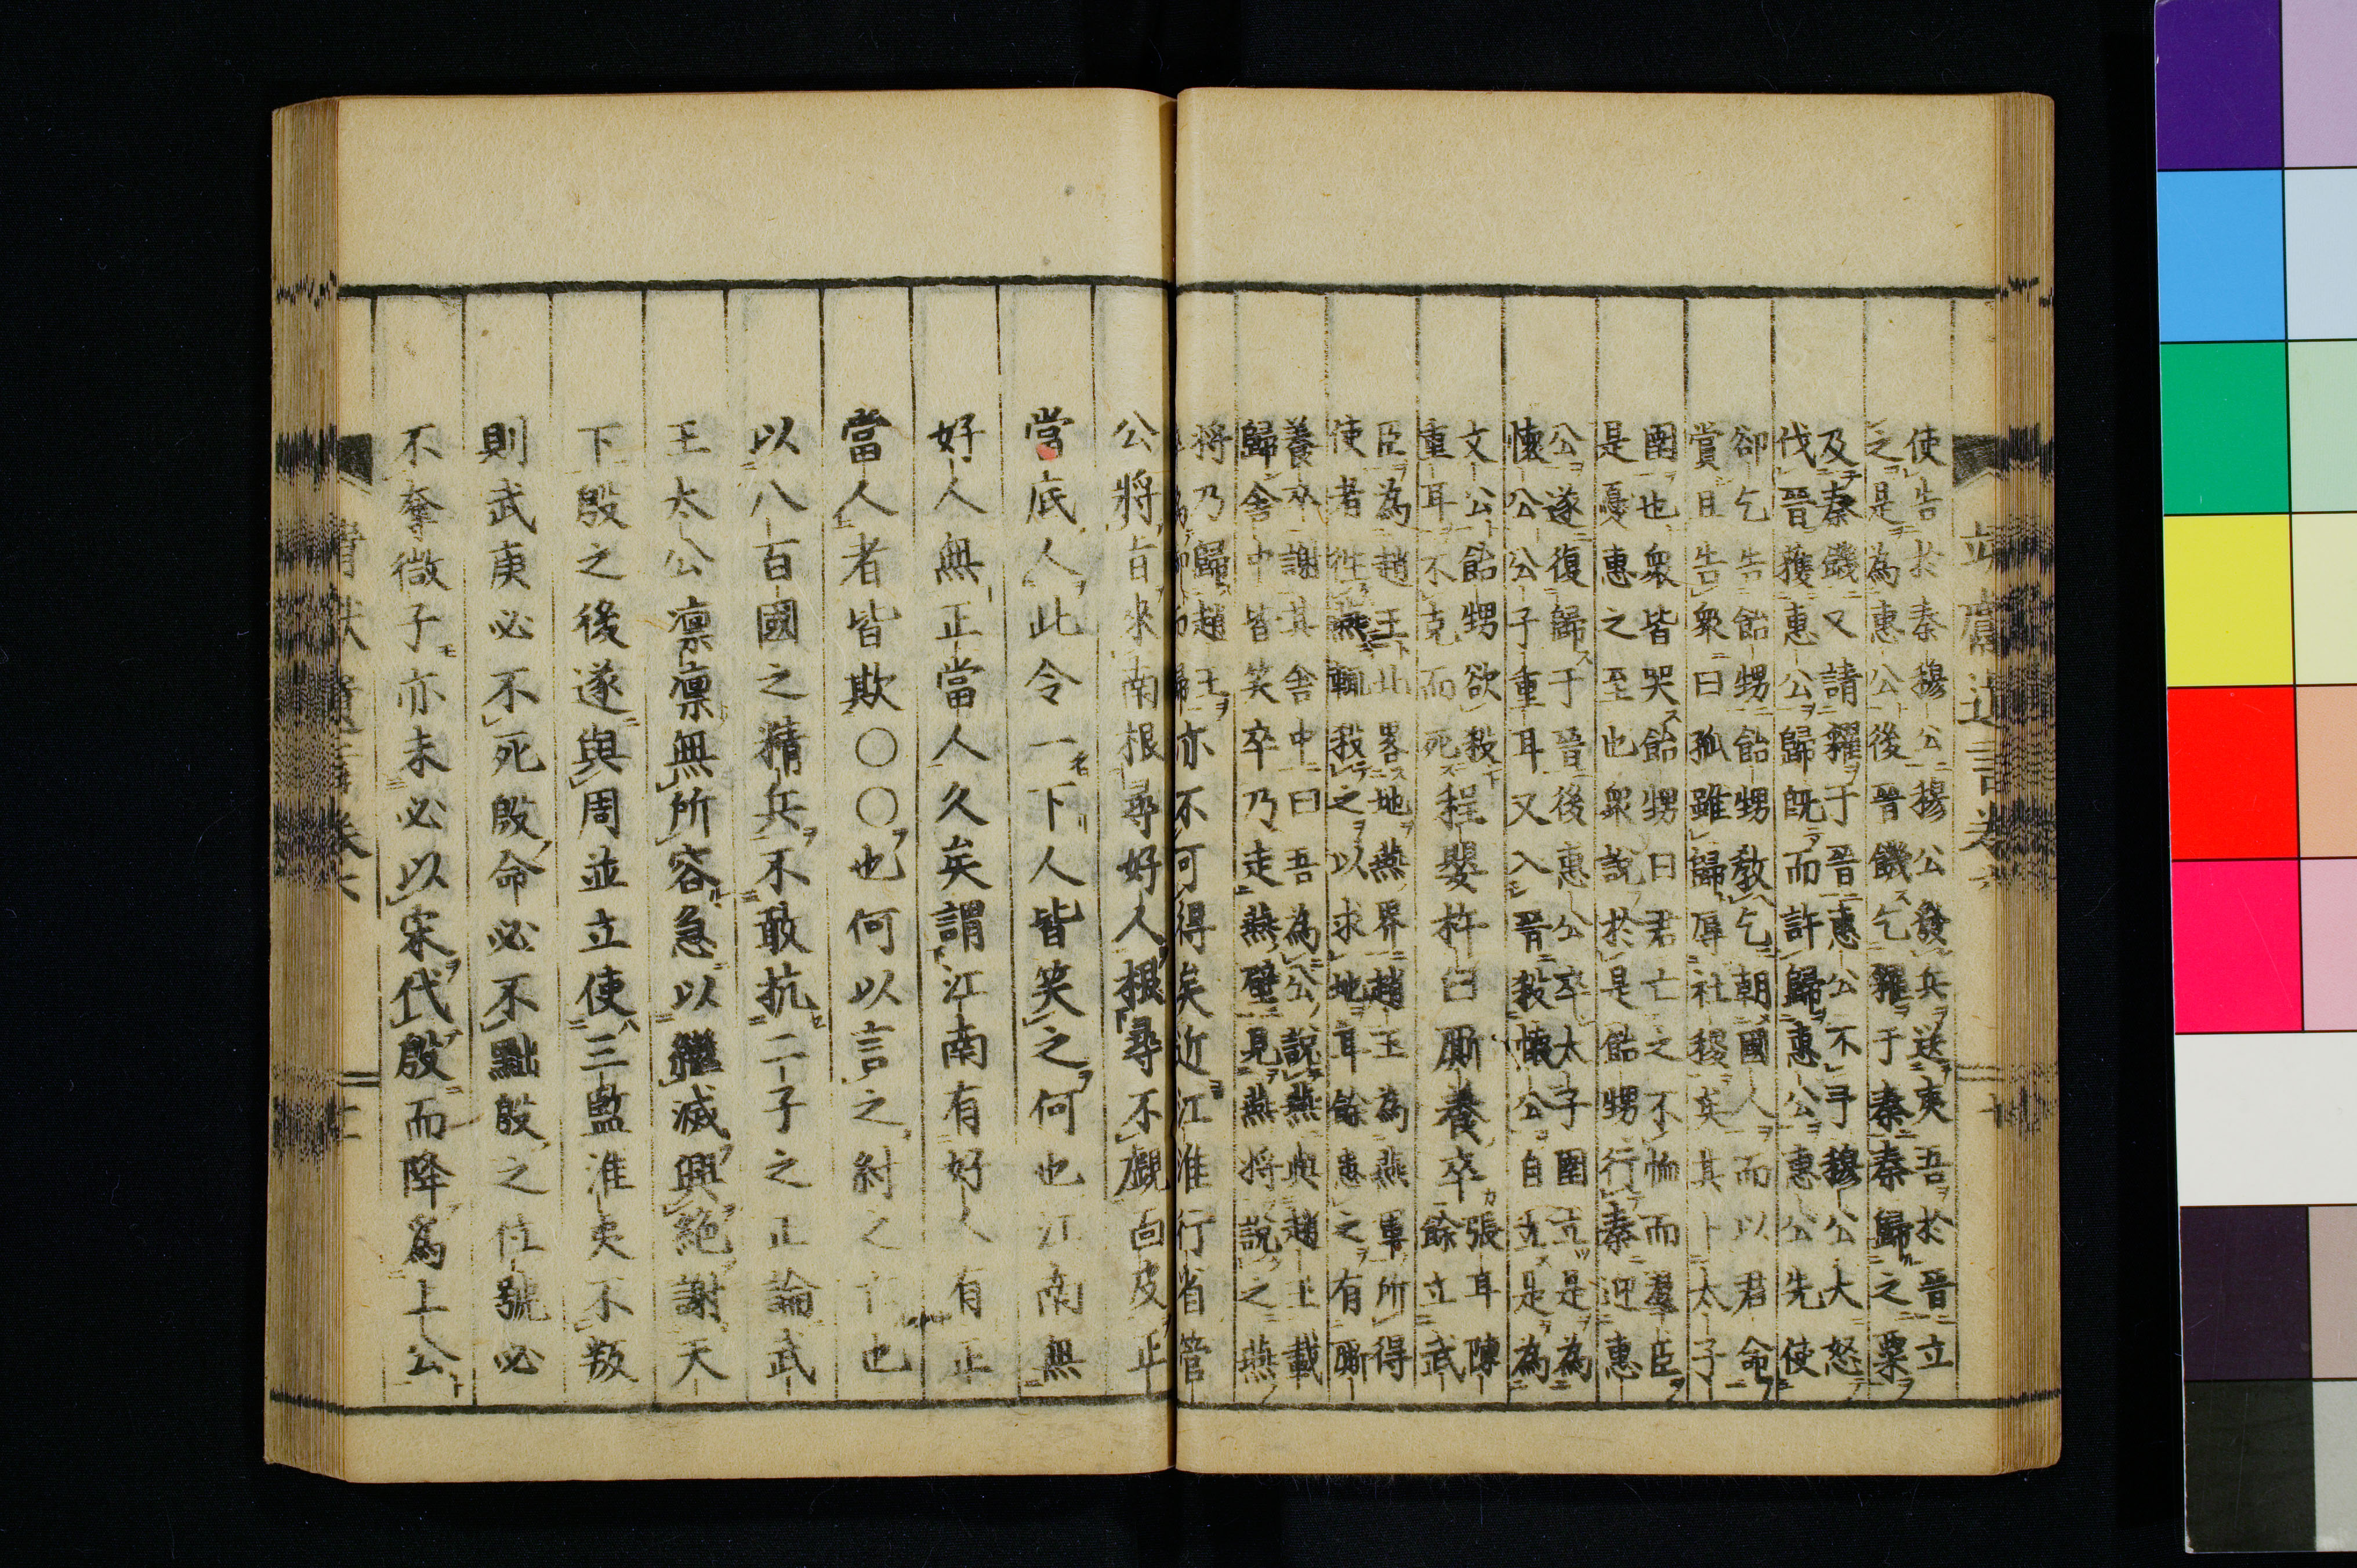 使告於秦穆公穆公發兵送夷吾於晉立
之是為惠公後晉饑乞糴于秦秦歸之粟
及秦饑又請糴于晉惠公不予穆公大怒
伐晉獲惠公歸既而許歸惠公惠公先使
郤乞告飴甥飴甥教乞朝國人而以君命
賞且告衆曰孤雖歸辱社稷矣其卜太子
圉也衆皆哭飴甥曰君亡之不恤而羣臣
是憂惠之至也衆說於是飴甥行秦迎惠
公遂復歸于晉後惠公卒太子圉立是為
懷公公子重耳又入晉殺懷公自立是為
文公飴甥欲殺
重耳不克而死 程嬰杵臼 厮養卒 張耳陳
餘立武
臣為趙王北畧地燕界趙王為燕軍所得
使者往燕輒殺之以求地耳餘患之有厮
養卒謝其舍中曰吾為公說燕與趙王載
歸舍中皆笑卒乃走燕壁見燕將說之燕
將乃歸趙王
亦不可得矣近江淮行省管
公將旨來南根尋好人根尋不覷面皮正
當底人此令一下人皆笑之何也江南無
好人無正當人久矣謂江南有好人有正
當人者皆欺〇〇也何以言之紂之亡也
以八百國之精兵不敢抗二子之正論武
王太公凛凛無所容急以繼滅興絕謝天
下殷之後遂與周並立使三監淮夷不叛
則武庚必不死殷命必不黜殷之位號必
不奪微子亦未必以宋代殷而降為上公